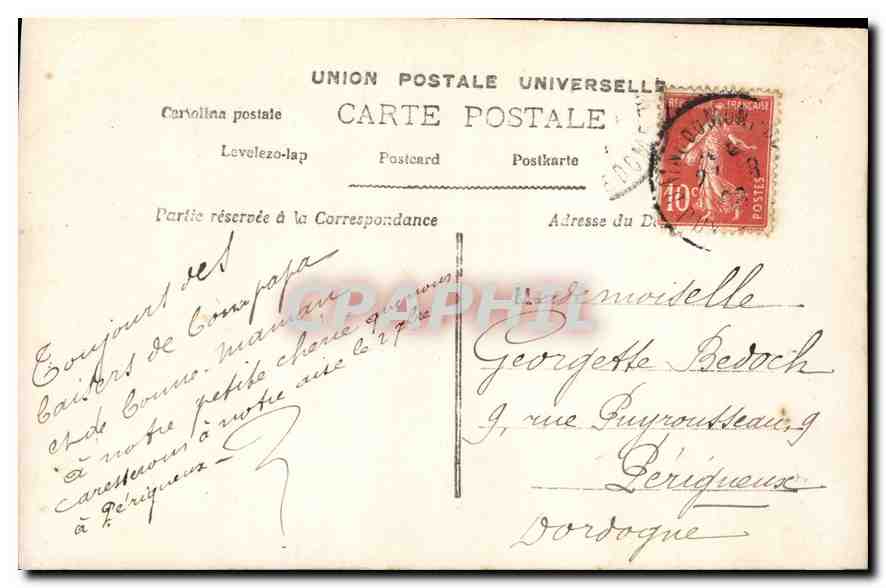 UNION POSTALE UNIVERSELLE
CARTE POSTALE
Cartolina postale
Levelezo-lap
Postcard
Postkarte
Partie réservée à la Correspondance
Adresse du De
RÉP FRANÇAISE
10c
POSTES
CPAPHIL
Toujours des
baisers de bonpapa
et de bonne-maman
à notre petite chérie que nous
caresserons à notre aise le 2
à Périgueux
Mademoiselle
Georgette Bedoch
9, rue Puyrousseau, 9
Périgueux
Dordogne